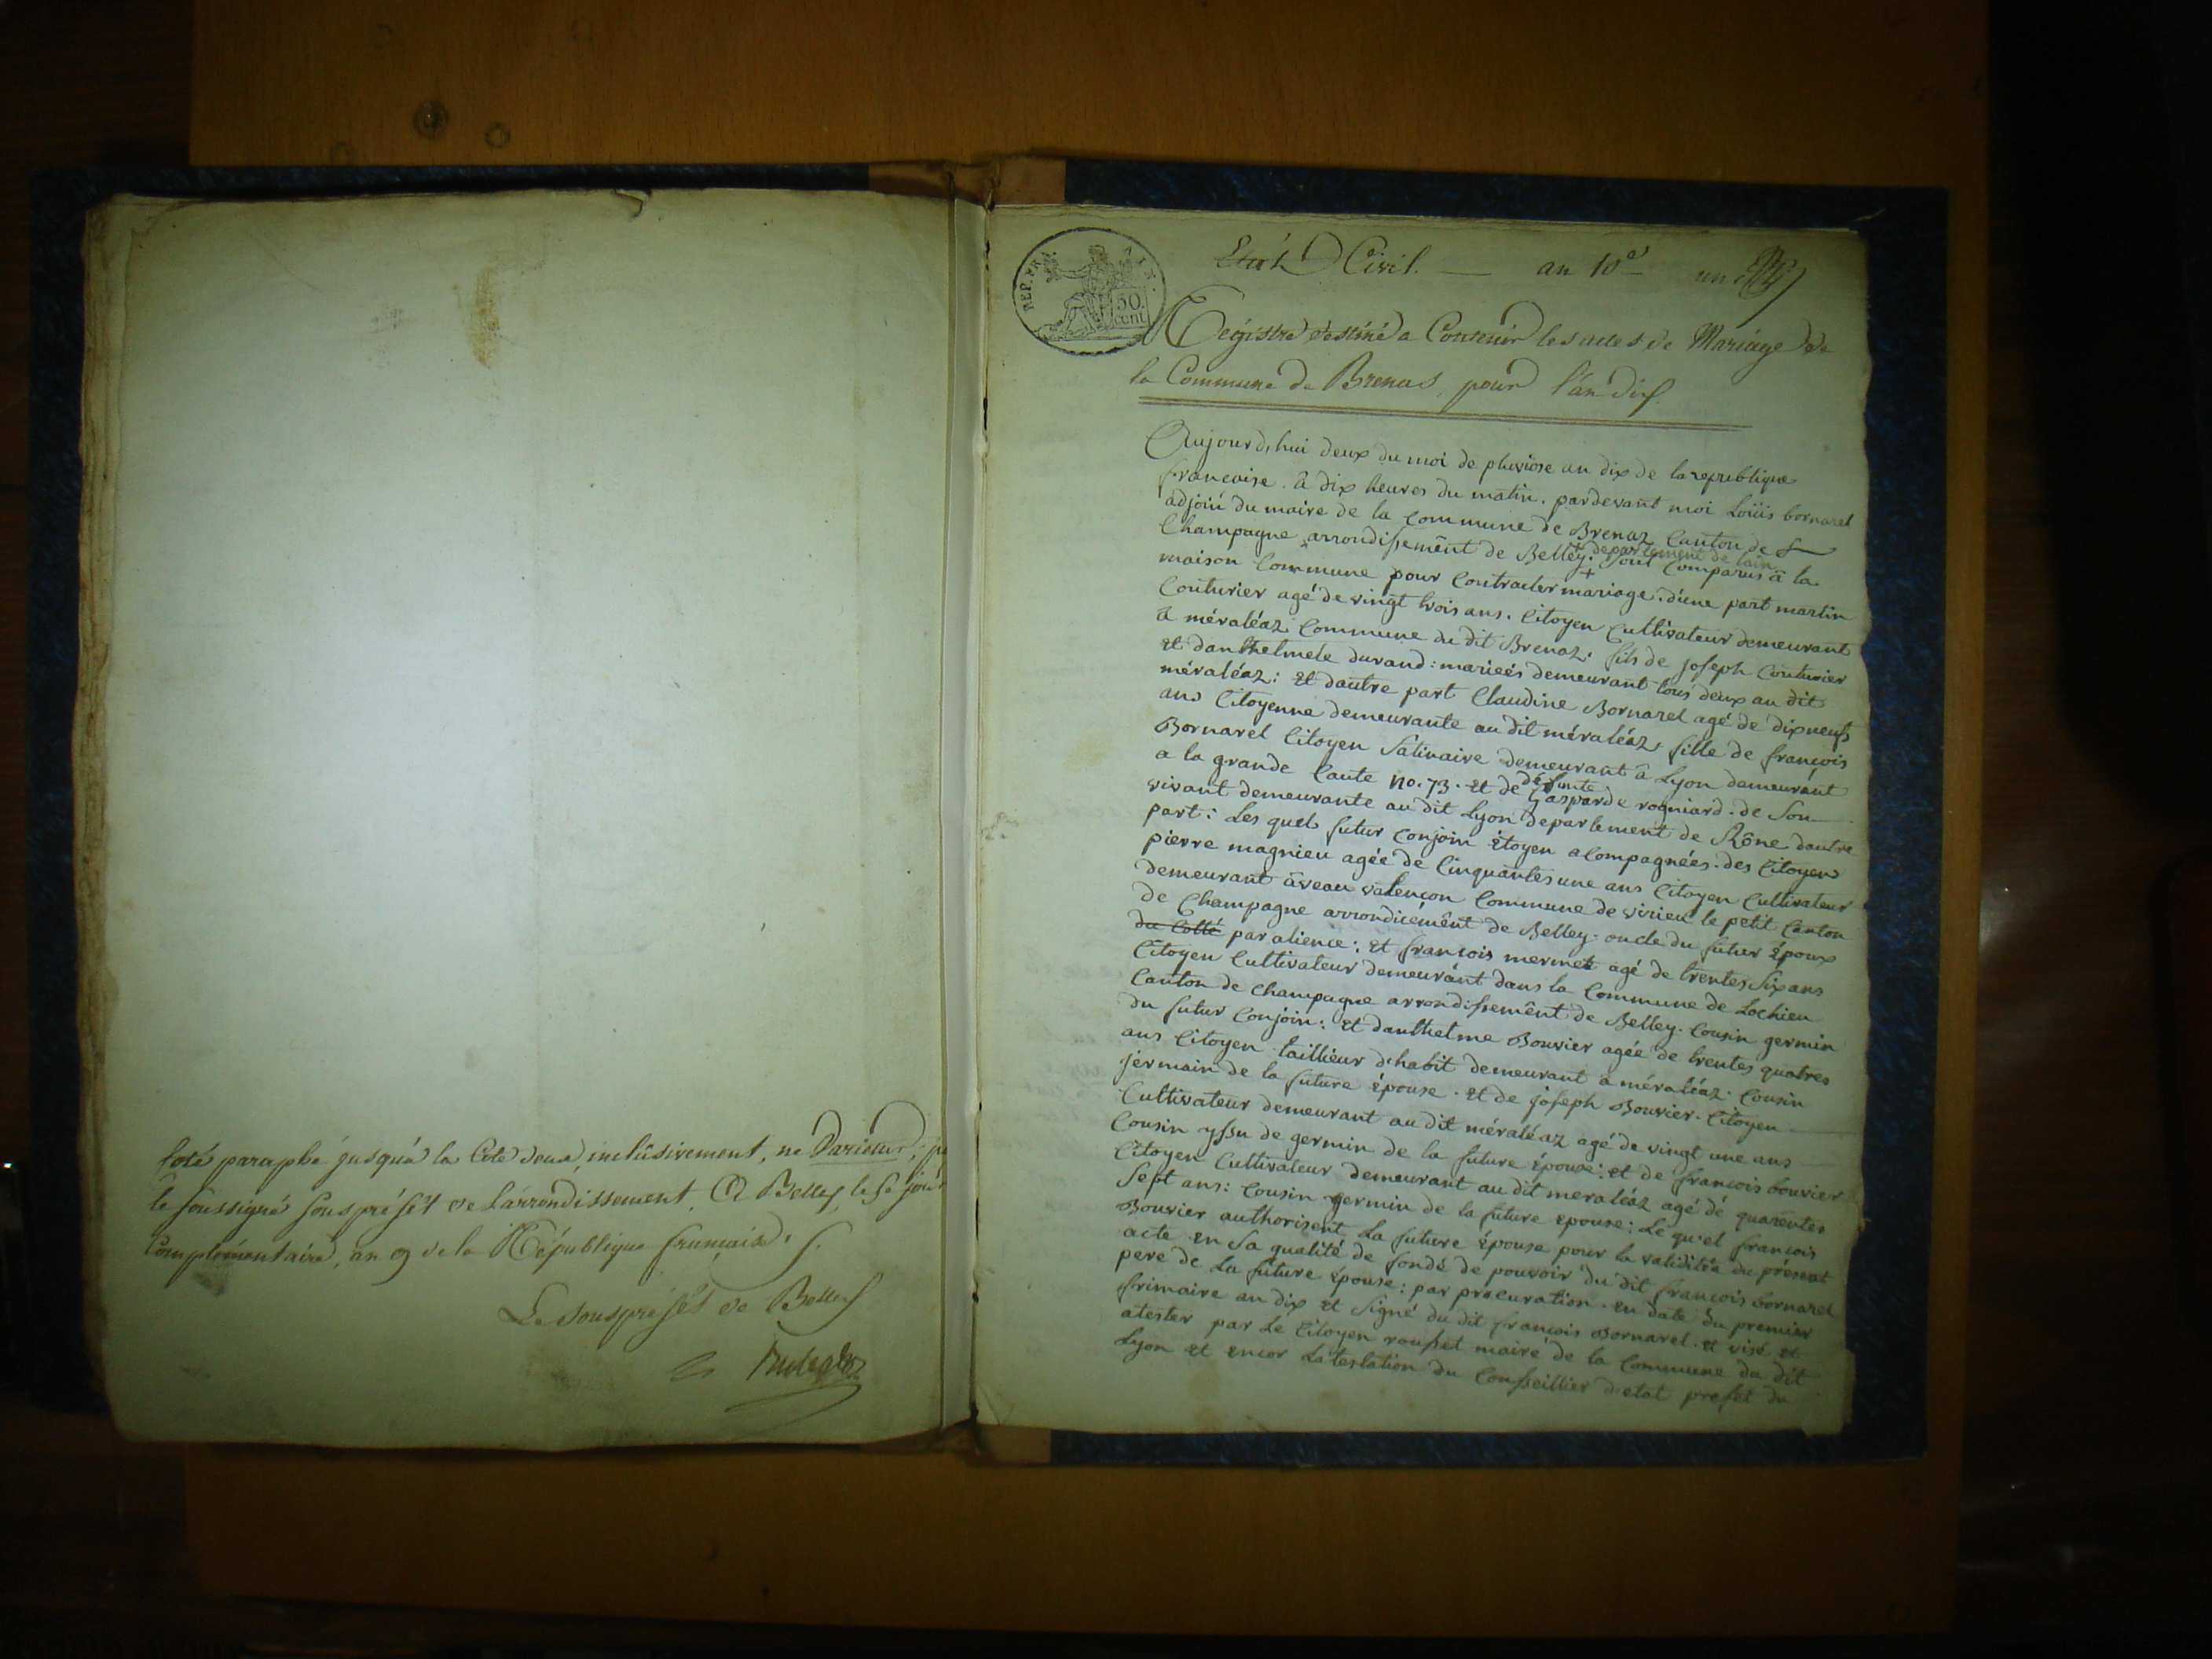 Coté paraphé jusqu'à la Cote deux inclusivement, ne Varietur, p
le soussigné sous préfét de l'arrondissement. A Belley, le 5e jour
Complémentaire, an 9 de la République française.
Le sous préfét de Belley
REP. FRA. AIN.
50. cent
Etat Civil. — an 10e un
Régistre destiné a Contenir les actes de Mariage de
la Commune de Brenas, pour l'an dix.
Aujourdhui deux du moi de pluviose an dix de la republique
francoise. â dix heures du matin. pardevant moi Loüis bornarel
adjoin du maire de la commune de Brenaz Canton de
+ departement de lain
Champagne + arrondissemênt de Belley. Sont Comparus â la
maison Commune pour Contracter mariage. d'une part martin
Couturier agé de vingt trois ans. Citoyen Cultivateur demeurant
a méraléaz Commune du dit Brenaz. fils de joseph Couturier
et danthelmele durand: marieés demeurant tous deux au dit
méraléaz: Et dautre part Claudine Bornarel agé de dixneufs
ans Citoyenne demeurante au dit méraléaz, fille de françois
Bornarel Citoyen Satinaire demeurant â Lyon demeurant
a la grande Caute no. 73. Et de défunte Gasparde rogniard. de Son
vivant demeurante au dit Lyon departement de Rône dautre
part: Les quels futur Conjoin étoyen acompagnées. des Citoyen
pierre magnieu agée de Cinquantes une ans Citoyen Cultivateur
demeurant âveau valençon Commune de virieu le petit Canton
de Champagne arrondicémênt de Belley. oncle du futur Époux
du Cotté par alience: Et françois mermet agé de trentes Six ans
Citoyen Cultivateur demeurant dans la Commune de Lochieu
Canton de Champagne arrondissemênt de Belley. Cousin germin
du futur Conjoin: Et danthelme Bouvier agée de trentes quatres
ans Citoyen tailliéur d'habit demeurant a méraléaz. Cousin
jermain de la future épouse. Et de joseph Bouvier. Citoyen
Cultivateur demeurant au dit méraléaz agé de vingt une ans
Cousin yssu de germin de la future épouse: et de francois bouvier
Citoyen Cultivateur demeurant au dit meraléaz agé dé quarentes
Sept ans: Cousin germin de la future epouse: Le qu'el françois
Bouvier authorisent La future épouse pour la validitée du présent
acte en Sa qualité de fondé de pouvoir du dit françois bornarel
pere de La future épouse: par procuration. en date du premier
frimaire an dix et Signé du dit françois Bornarel. et visé et
atester par Le Citoyen rousset maire de la Commune du dit
Lyon et encor Latestation du Conseillier d'etat prefet du